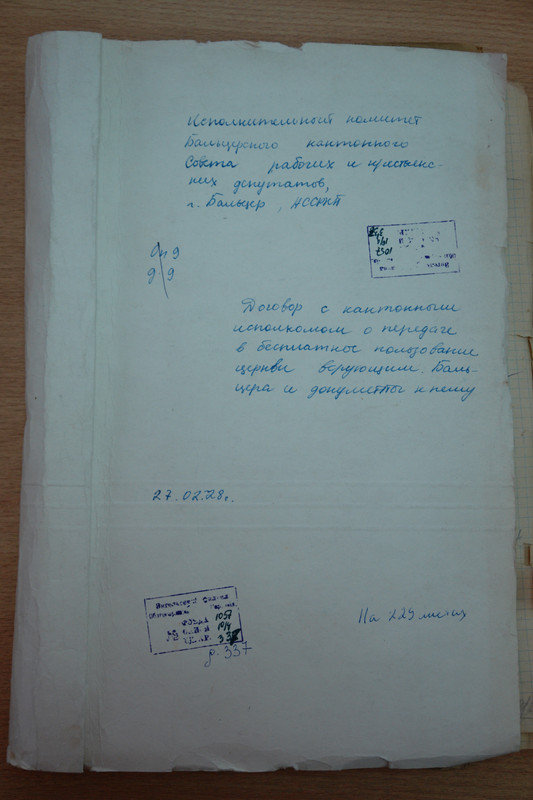 Исполнительный комитет
Бальцерского кантонного
Совета рабочих и крестьянс-
ких депутатов,
г. Бальцер, АССНП
Оп 9
д 9
Договор с кантонным
исполкомом о передаче
в бесплатное пользование
церкви верующим. Баль-
цера и документы к нему
27.02.28г.
На 229 листах
1057
19/4
д. 337